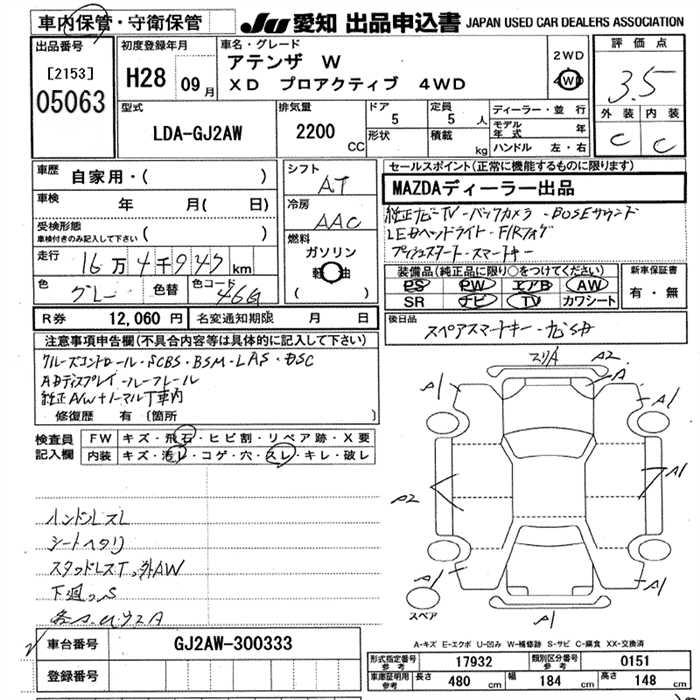 車内保管・守衛保管
JU 愛知 出品申込書 JAPAN USED CAR DEALERS ASSOCIATION
出品番号
[2153]
05063
初度登録年月
H28 09月
車名・グレード
アテンザ W
XD プロアクティブ 4WD
2WD
4WD
評価点
3.5
外装 内装
C C
型式
LDA-GJ2AW
排気量
2200 CC
ドア
5
定員
5 人
形状
積載
kg
ディーラー・並行
モデル年式 年
ハンドル 左・右
車歴
自家用・( )
車検 年 月( 日)
受検形態
車検付きのみ記入して下さい ( )
走行 16万4千947km
色 グレー 色替 色コード 46G
シフト
AT
冷房
AAC
燃料
ガソリン
軽油
( )
セールスポイント(正常に機能するものに限ります)
MAZDAディーラー出品
純正ナビ-TV-バックカメラ-BOSEサウンド
LEDヘッドライト-F/Rフォグ
プッシュスタート-スマートキー
装備品(純正品に限り○をつけてください)
PS PW エアB AW
SR ナビ TV カワシート
新車保証書
有・無
R券 12,060円 名変通知期限 月 日
後日品
スペアスマートキー-ナビSD
注意事項申告欄(不具合内容等は具体的に記入して下さい)
クルーズコントロール-SCBS-BSM-LAS-DSC
ADディスプレイ-ルーフレール
純正A/W+ノーマルT車内
修復歴 有 (箇所 )
検査員記入欄
FW キズ・飛石・ヒビ割・リペア跡・X要
内装 キズ・汚レ・コゲ・穴・スレ・キレ・破レ
ハンドルスレ
シートヘタリ
スタッドレスT、外AW
下廻り、S
スリA A2
A1 A
A1
A2
A1
A1 A1
A1
スペア
A-キズ E-エクボ U-凹み W-補修跡 S-サビ C-腐食 XX-交換済
車台番号 GJ2AW-300333
登録番号
形式指定番号 参考 17932 類別区分番号 参考 0151
車庫証明用 参考 長さ 480 cm 幅 184 cm 高さ 148 cm